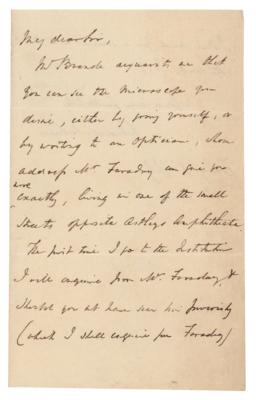 My dear Sir,
Mr Brande acquaints me that
you can see the microscope you
desire, either by going yourself, or
by writing to an Optician, whose
address Mr Faraday can give you
more
exactly, living in one of the small
streets opposite Astleys Amphitheatre
The first time I go to the Institution
I will enquire from Mr. Faraday, &
should you not have seen him previously
(which I shall enquire from Faraday)